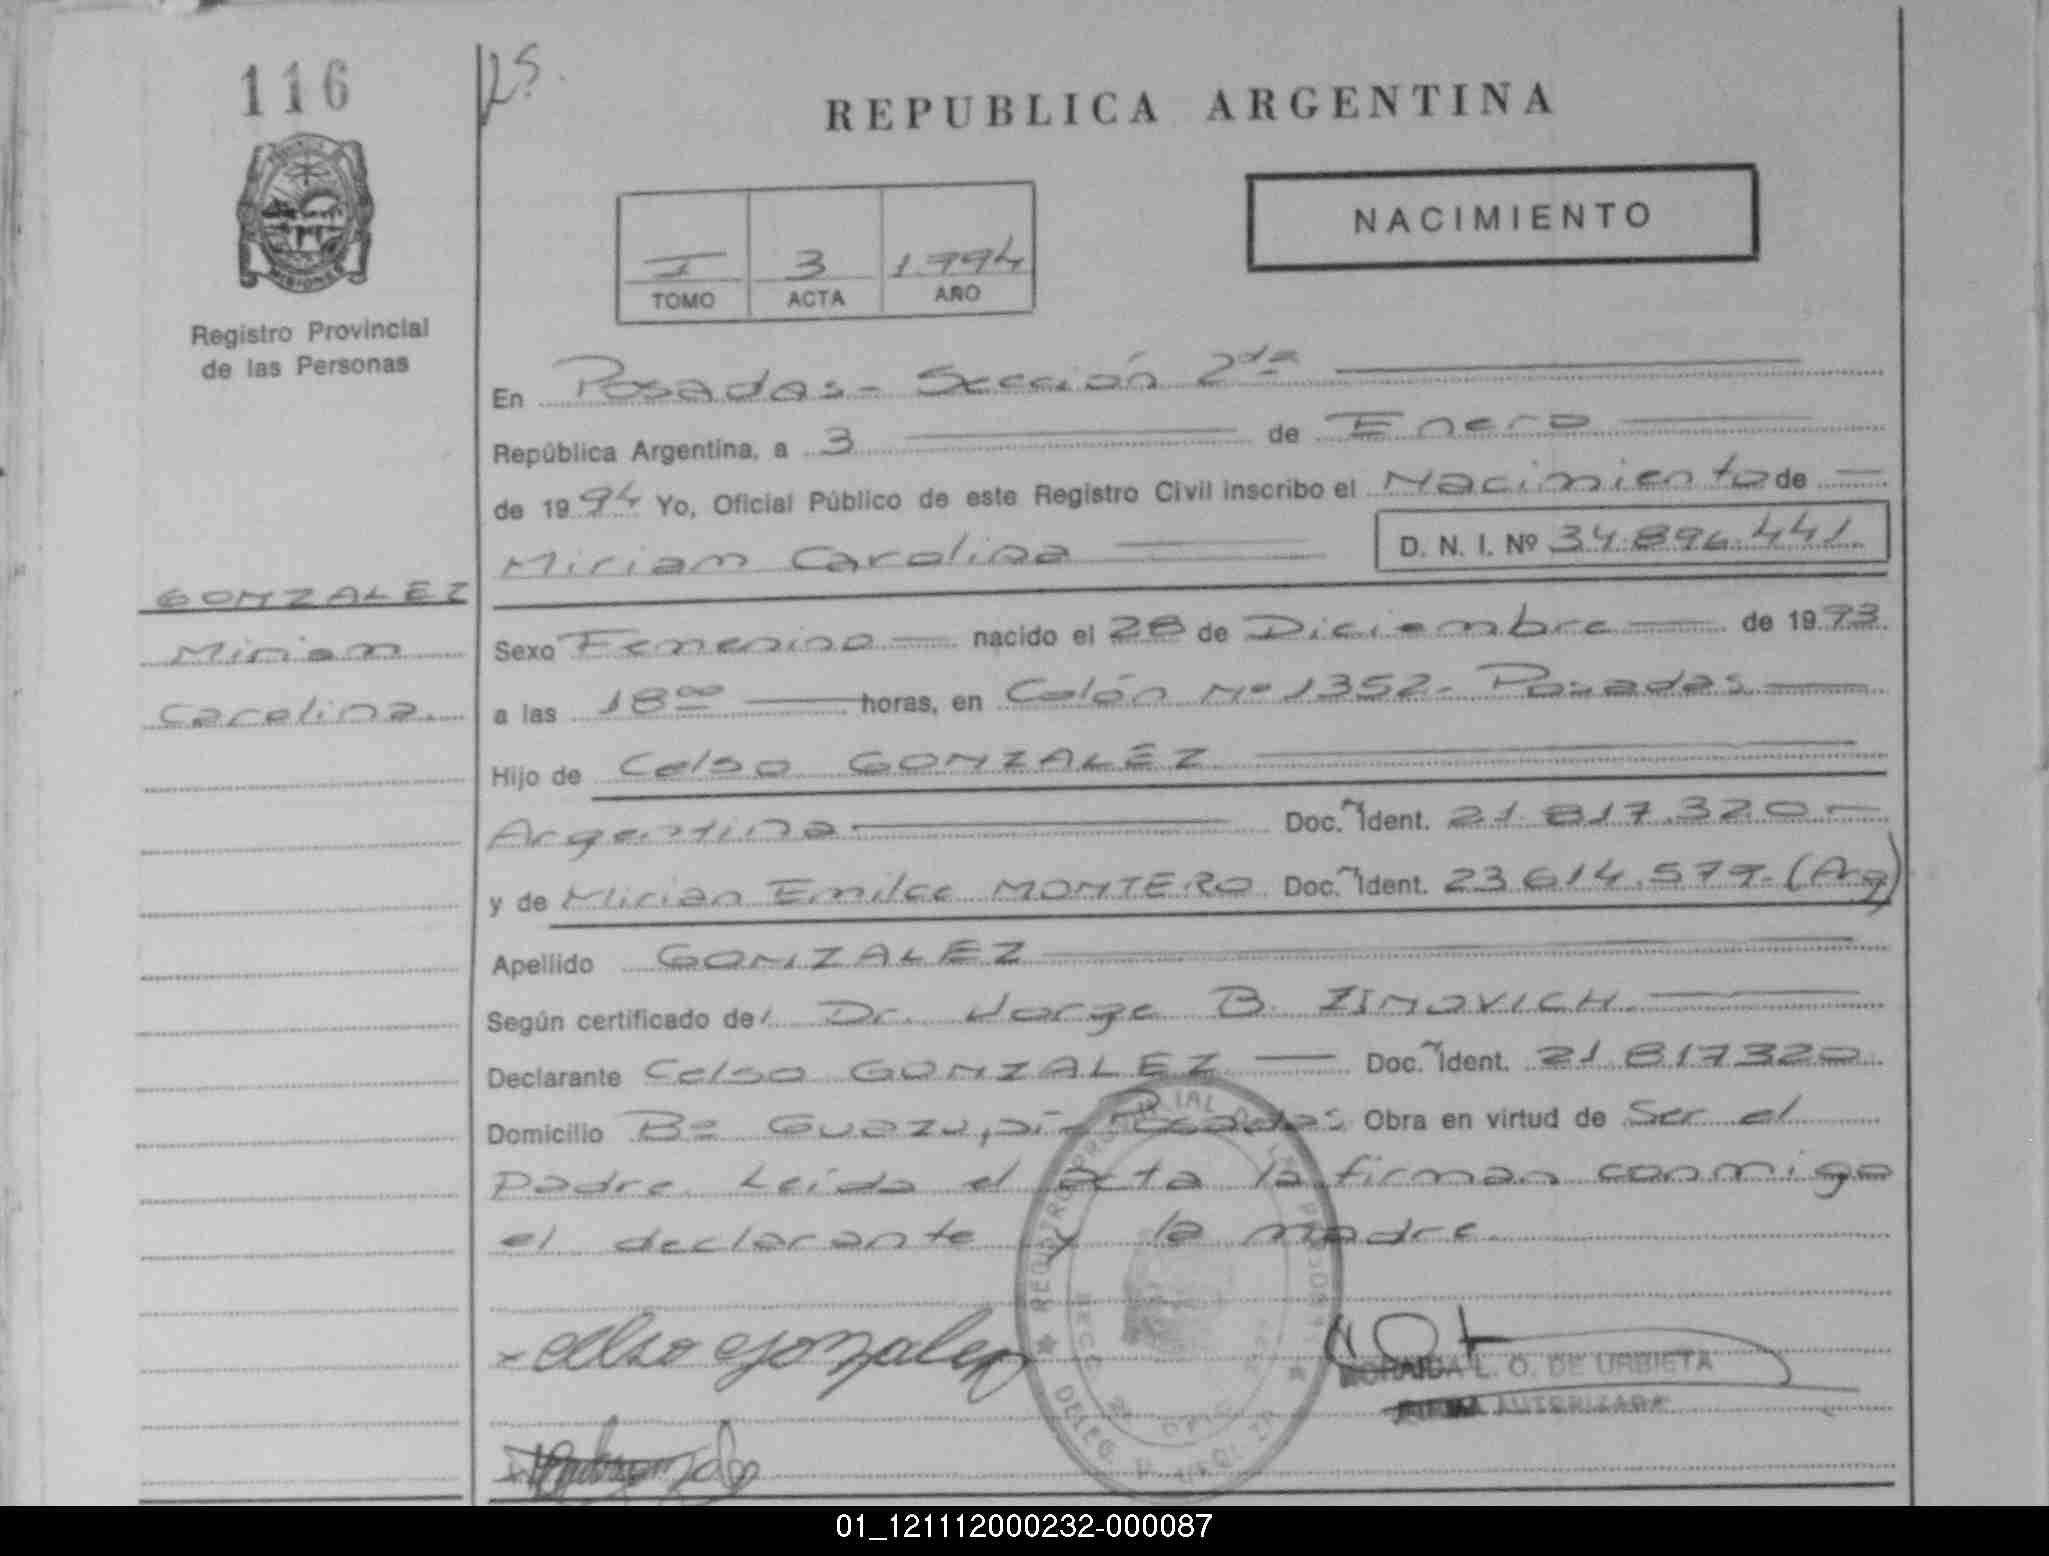 116
25.
REPUBLICA ARGENTINA
NACIMIENTO
I 3 1.994
TOMO ACTA AÑO
Registro Provincial
de las Personas
En Posadas - Sección 2da
República Argentina, a 3 de Enero
de 1994 Yo, Oficial Público de este Registro Civil inscribo el Nacimiento de
Miriam Carolina D. N. I. Nº 34.896.441.
GONZALEZ
Miriam
Carolina.
Sexo Femenino nacido el 28 de Diciembre de 1993.
a las 18 00 horas, en Colón Nº 1352 - Posadas
Hijo de Celso GONZALEZ
Argentina Doc. Ident. 21.817.320
y de Mirian Emilce MONTERO Doc. Ident. 23.614.579. (Arg)
Apellido GONZALEZ
Según certificado del Dr. Jorge B. ZINOVICH
Declarante Celso GONZALEZ Doc. Ident. 21.817320
Domicilio Bº Guazu, Posadas Obra en virtud de Ser el
Padre. Leída el acta la firman conmigo
el declarante y la madre.
Celso Gonzalez
L. O. DE URBIETA
FIRMA AUTORIZADA
REGISTRO PROVINCIAL DE LAS PERSONAS
01_121112000232-000087